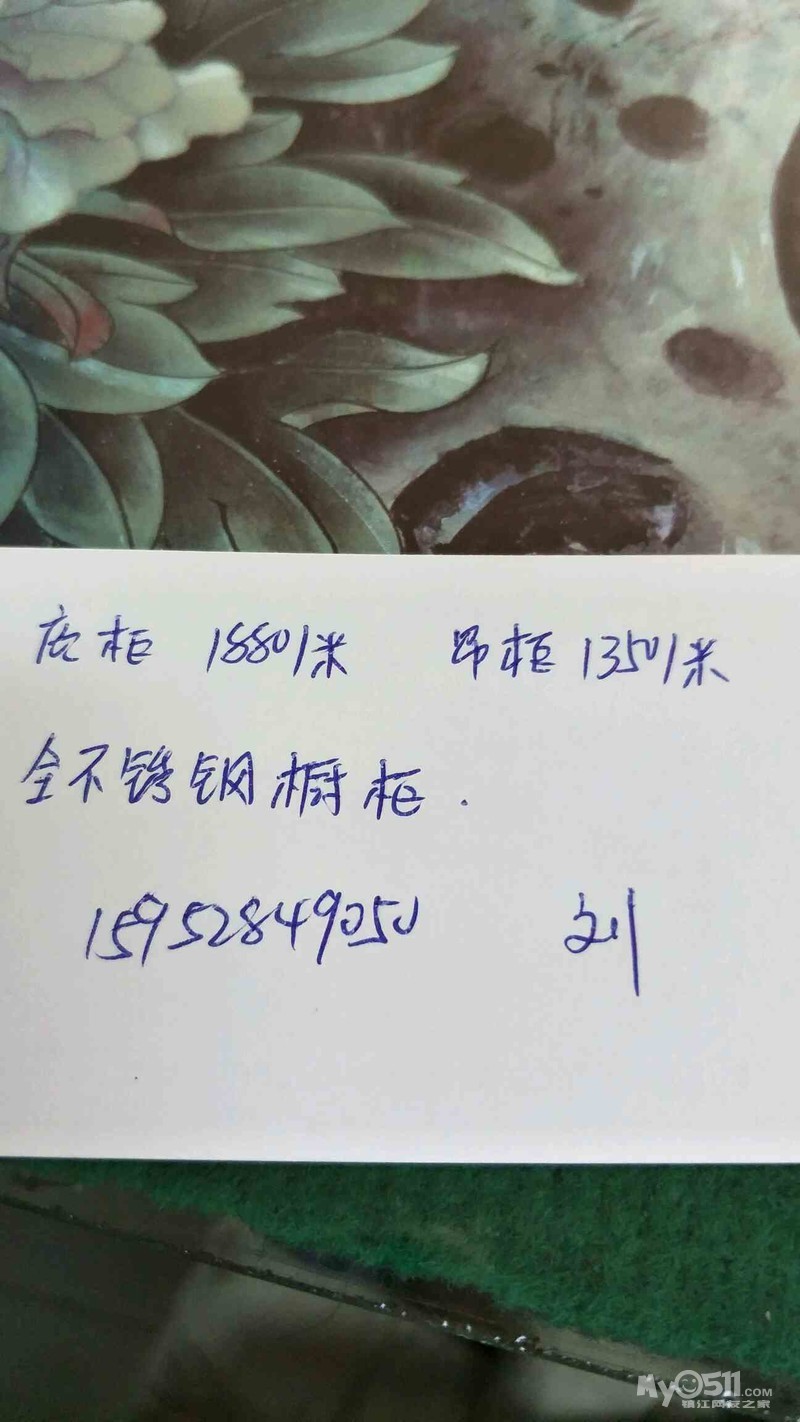 底柜 1880/米 吊柜 1350/米
全不锈钢橱柜.
15952849050 刘
MY0511.COM
镇江网友之家